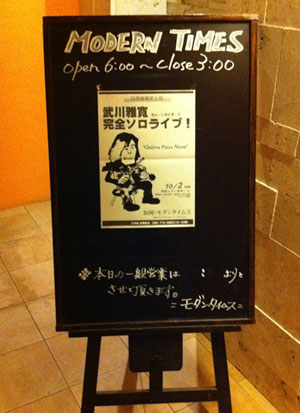 MODERN TIMES
open 6:00～close 3:00
武川雅寛
完全ソロライブ!
"Quiero Plays Alone"
10/2
福岡・モダンタイムス
※本日の一般営業は : より
させて頂きます。
=モダンタイムス=